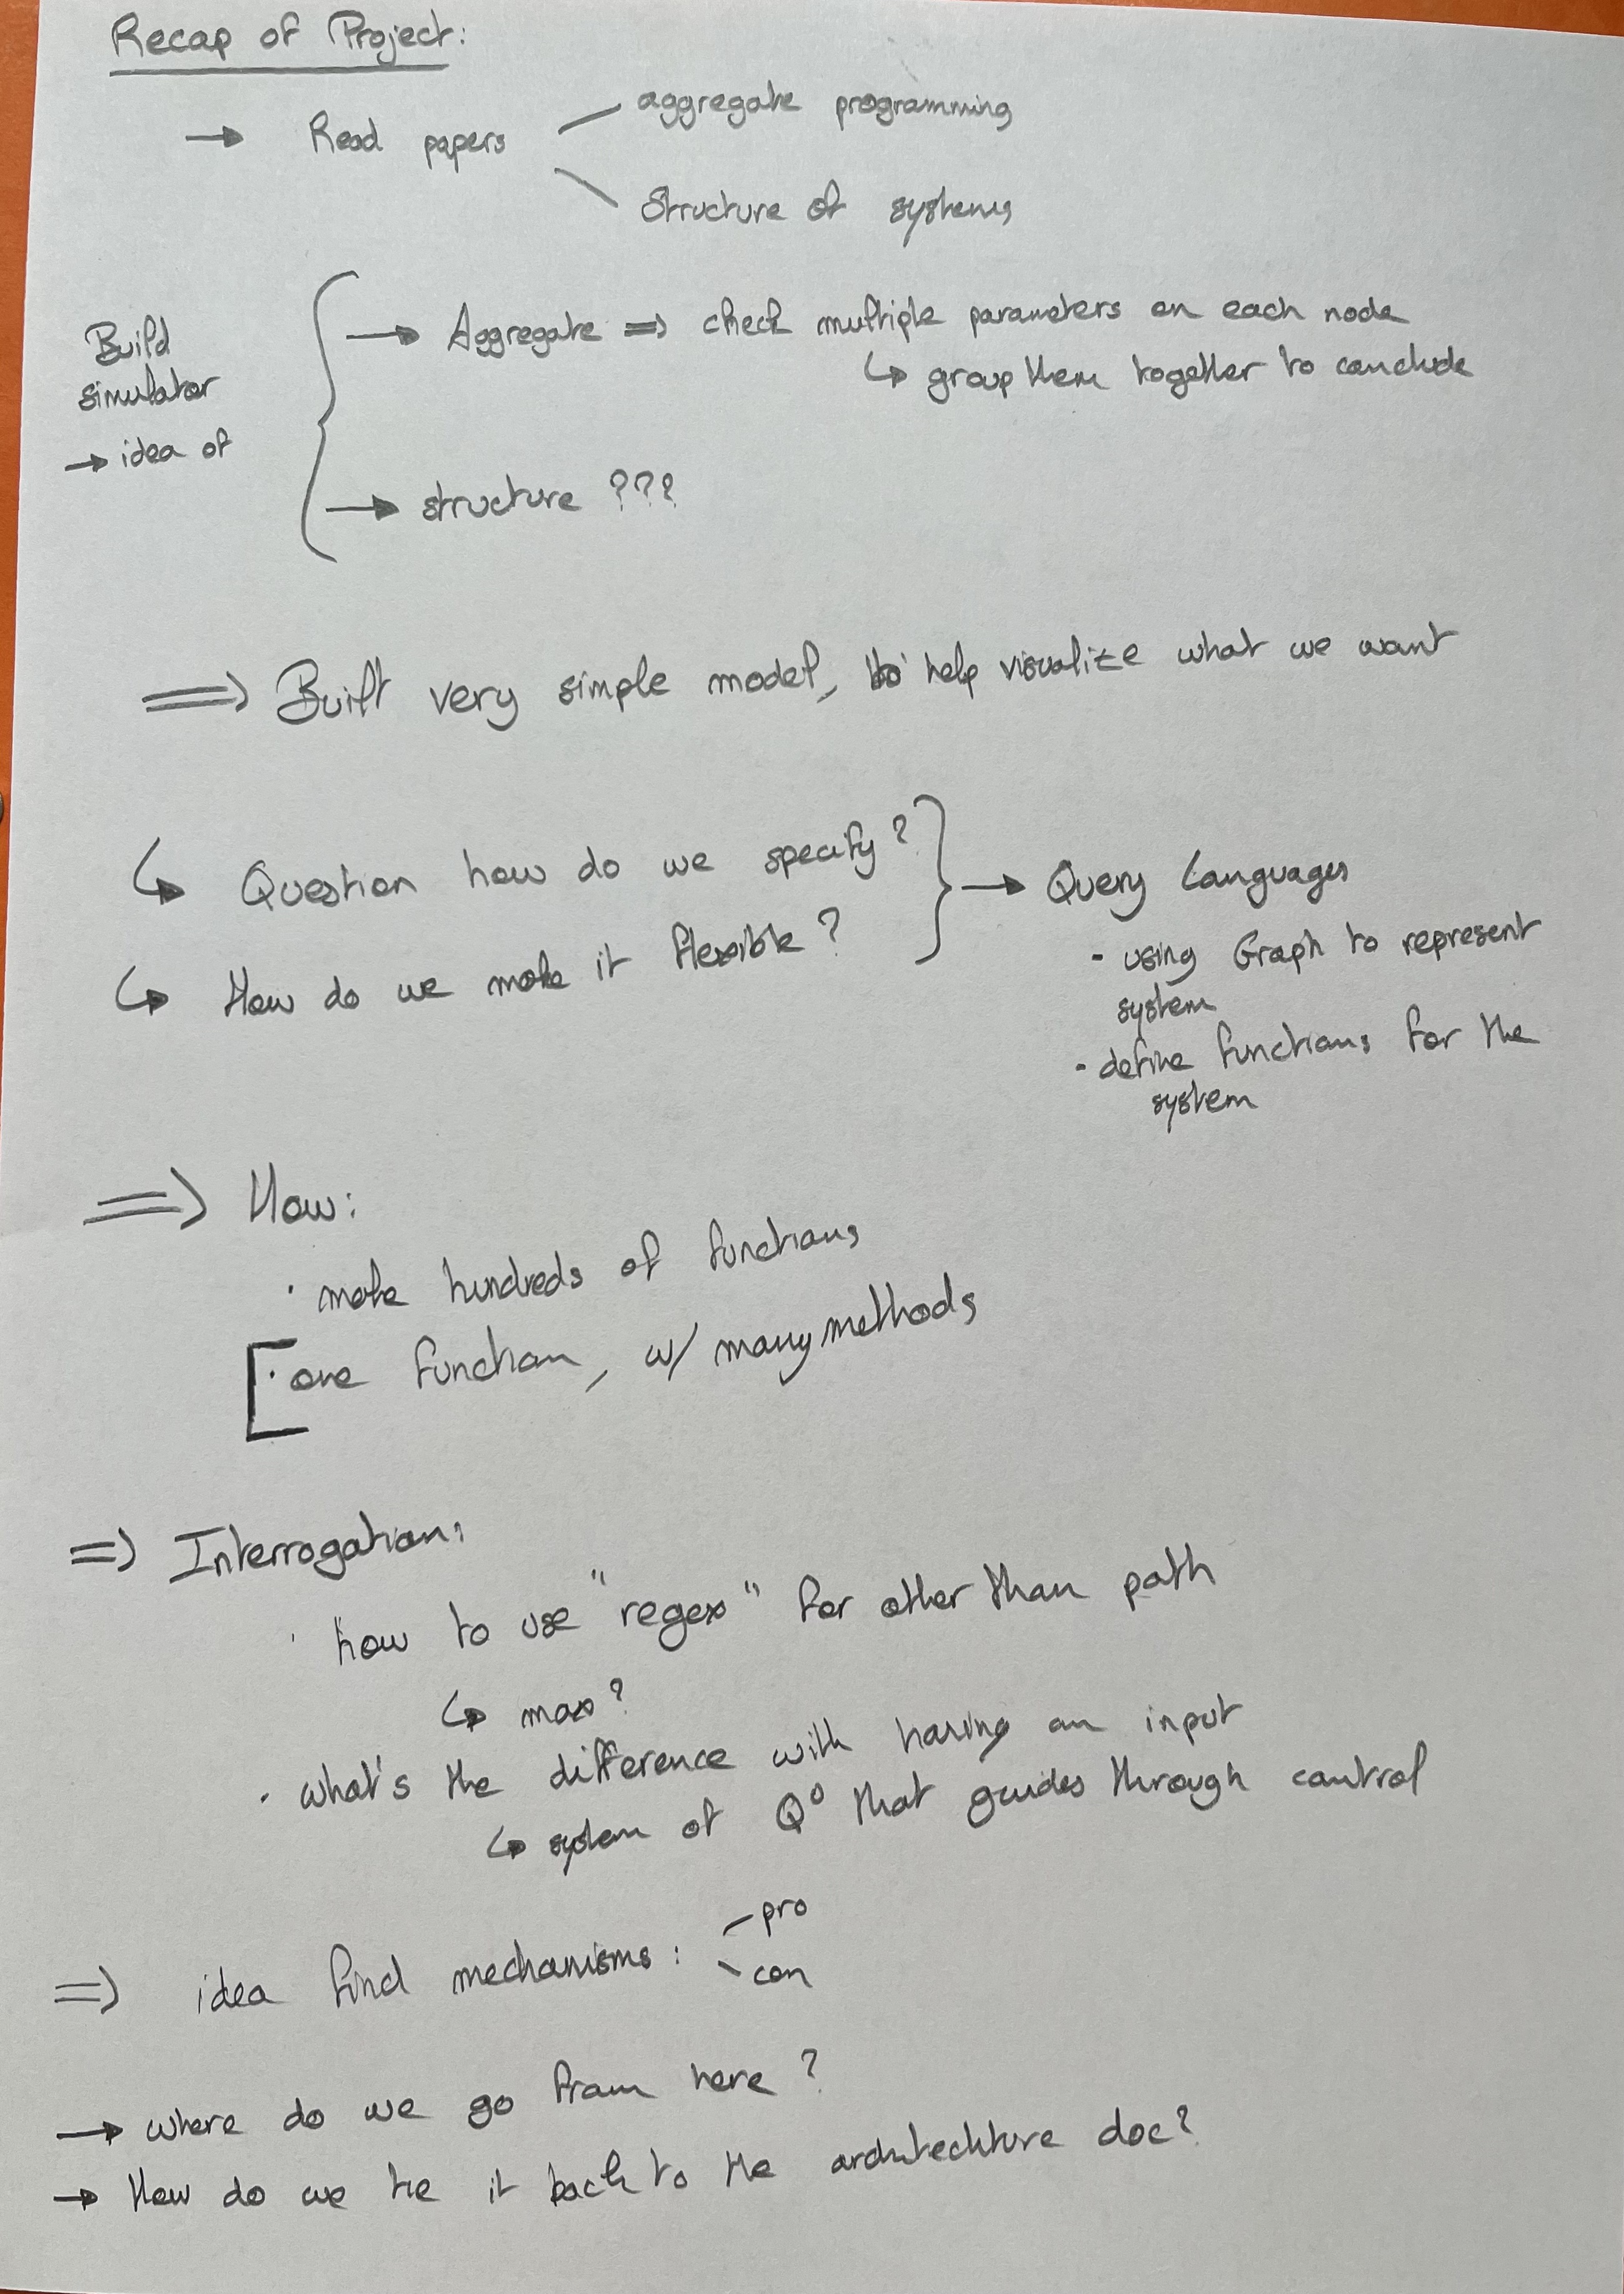 Recap of Project:
→ Read papers
aggregate programming
Structure of systems
Build
simulator
→ idea of
→ Aggregate ⇒ check multiple parameters on each node
↳ group them together to conclude
→ structure ???
⇒ Built very simple model, to help visualize what we want
↳ Question how do we specify?
↳ How do we make it flexible?
→ Query Languages
- using Graph to represent
system
- define functions for the
system
⇒ How:
· make hundreds of functions
[· one function, w/ many methods
⇒ Interrogation:
· how to use "regex" for other than path
↳ max?
· what's the difference with having an input
↳ system of Q° that guides through control
⇒ idea find mechanisms:
- pro
- con
→ where do we go from here?
→ How do we tie it back to the architechture doc?